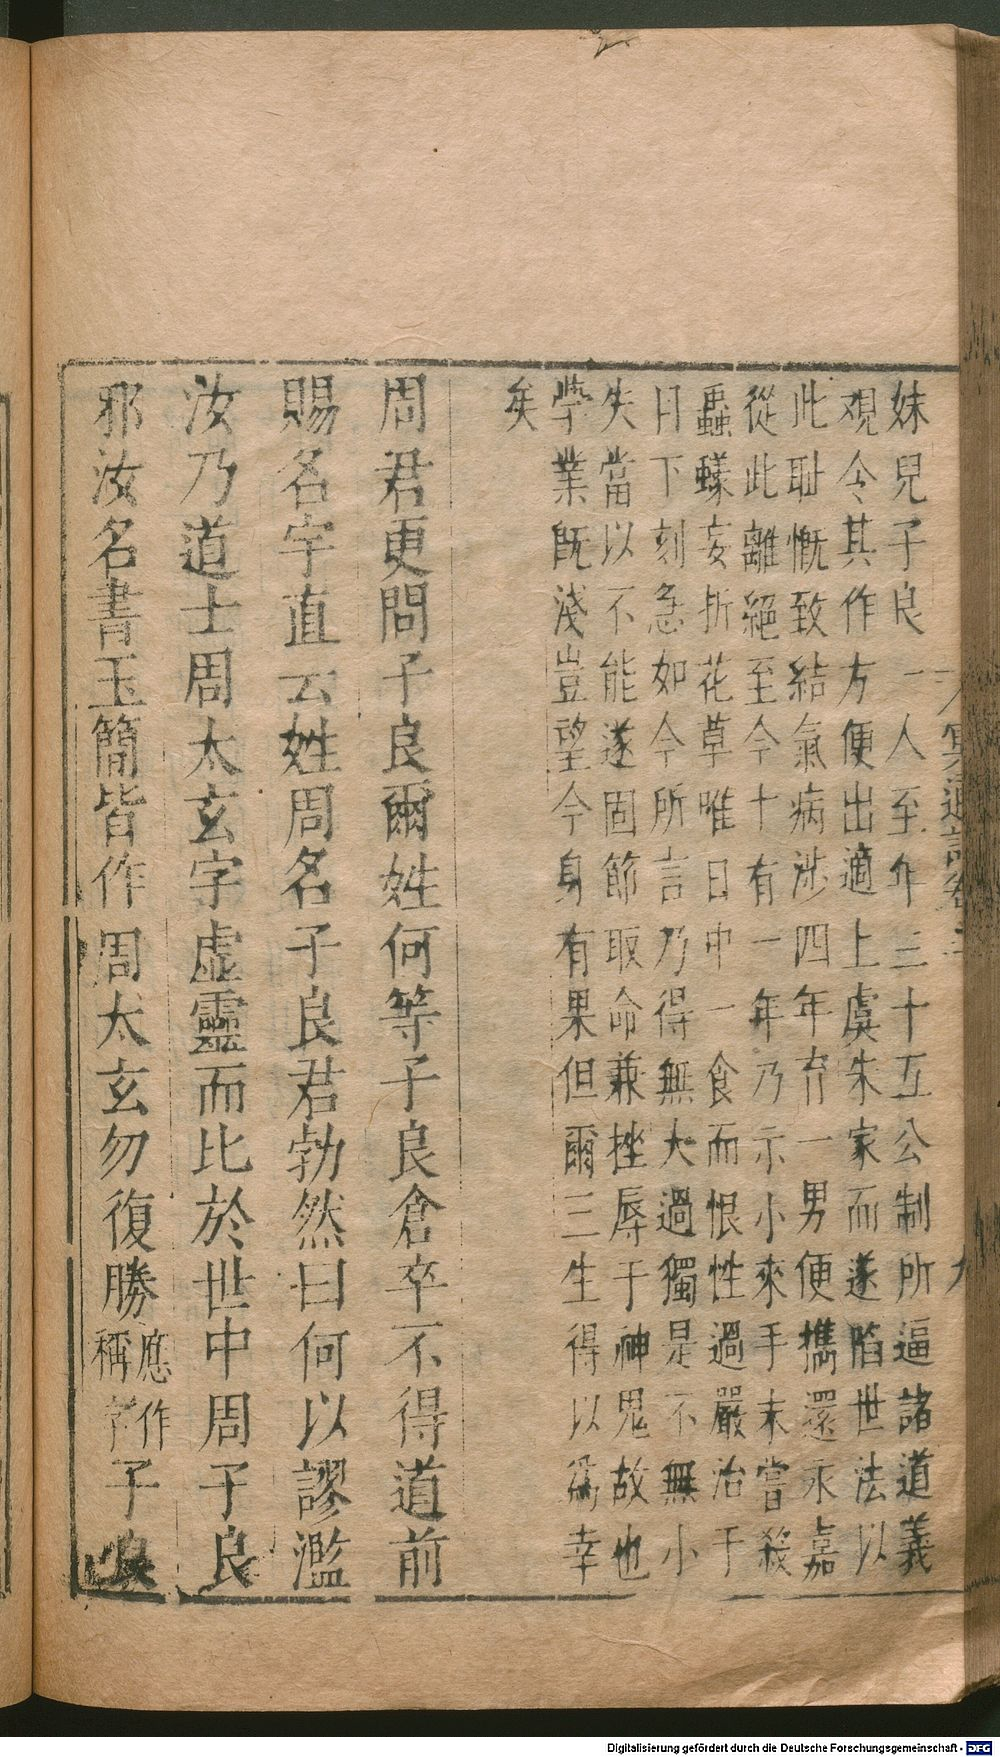 冥通記卷二
九
妹兒子良一人至年三十五公制所逼諸道義
觀令其作方便出適上虞朱家而遂陷世法以
此恥慨致結氣病涉四年育一男便攜還永嘉
從此離絕至今十有一年乃示小來手未嘗殺
蟲蟻妄折花草唯日中一食而恨性過嚴治于
日下刻急如今所言乃得無大過獨是不無小
失當以不能遂固節取命兼挫辱于神鬼故也
學業既淺豈望今身有果但爾三生得以為幸
矣
周君更問子良爾姓何等子良倉卒不得道前
賜名字直云姓周名子良君勃然曰何以謬濫
汝乃道士周太玄字虛靈而比於世中周子良
邪汝名書玉簡皆作周太玄勿復勝應作稱字子良
Digitalisierung gefördert durch die Deutsche Forschungsgemeinschaft - DFG